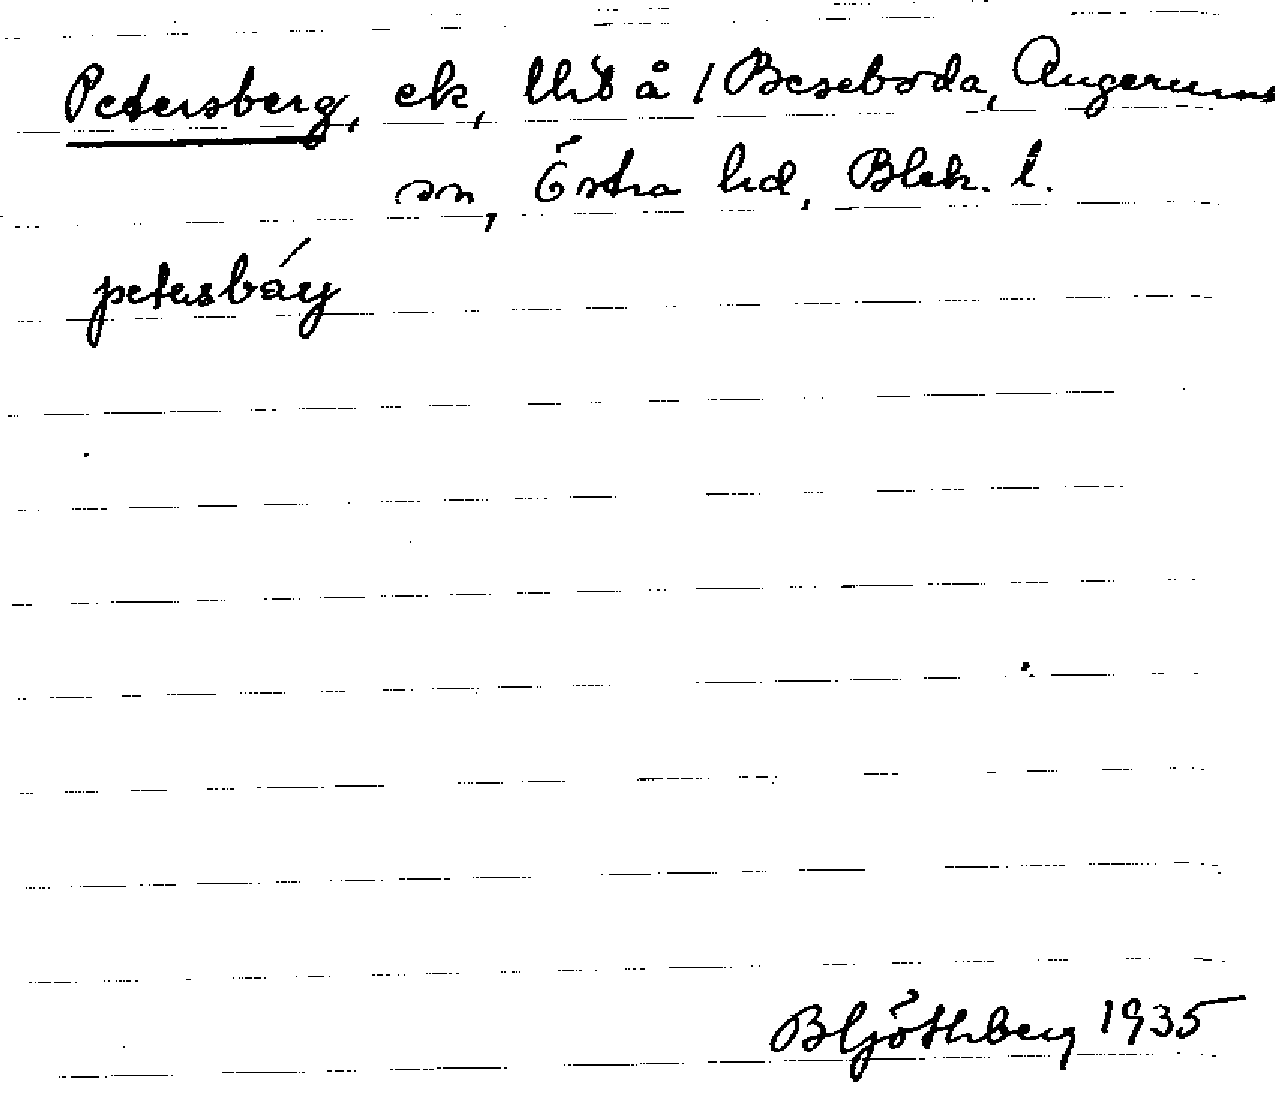 Petersberg, ek, lht å 1 Beseboda, Augerums
sn, Östra hd, Blek. l.
petesbáry
B Ljöthberg 1935